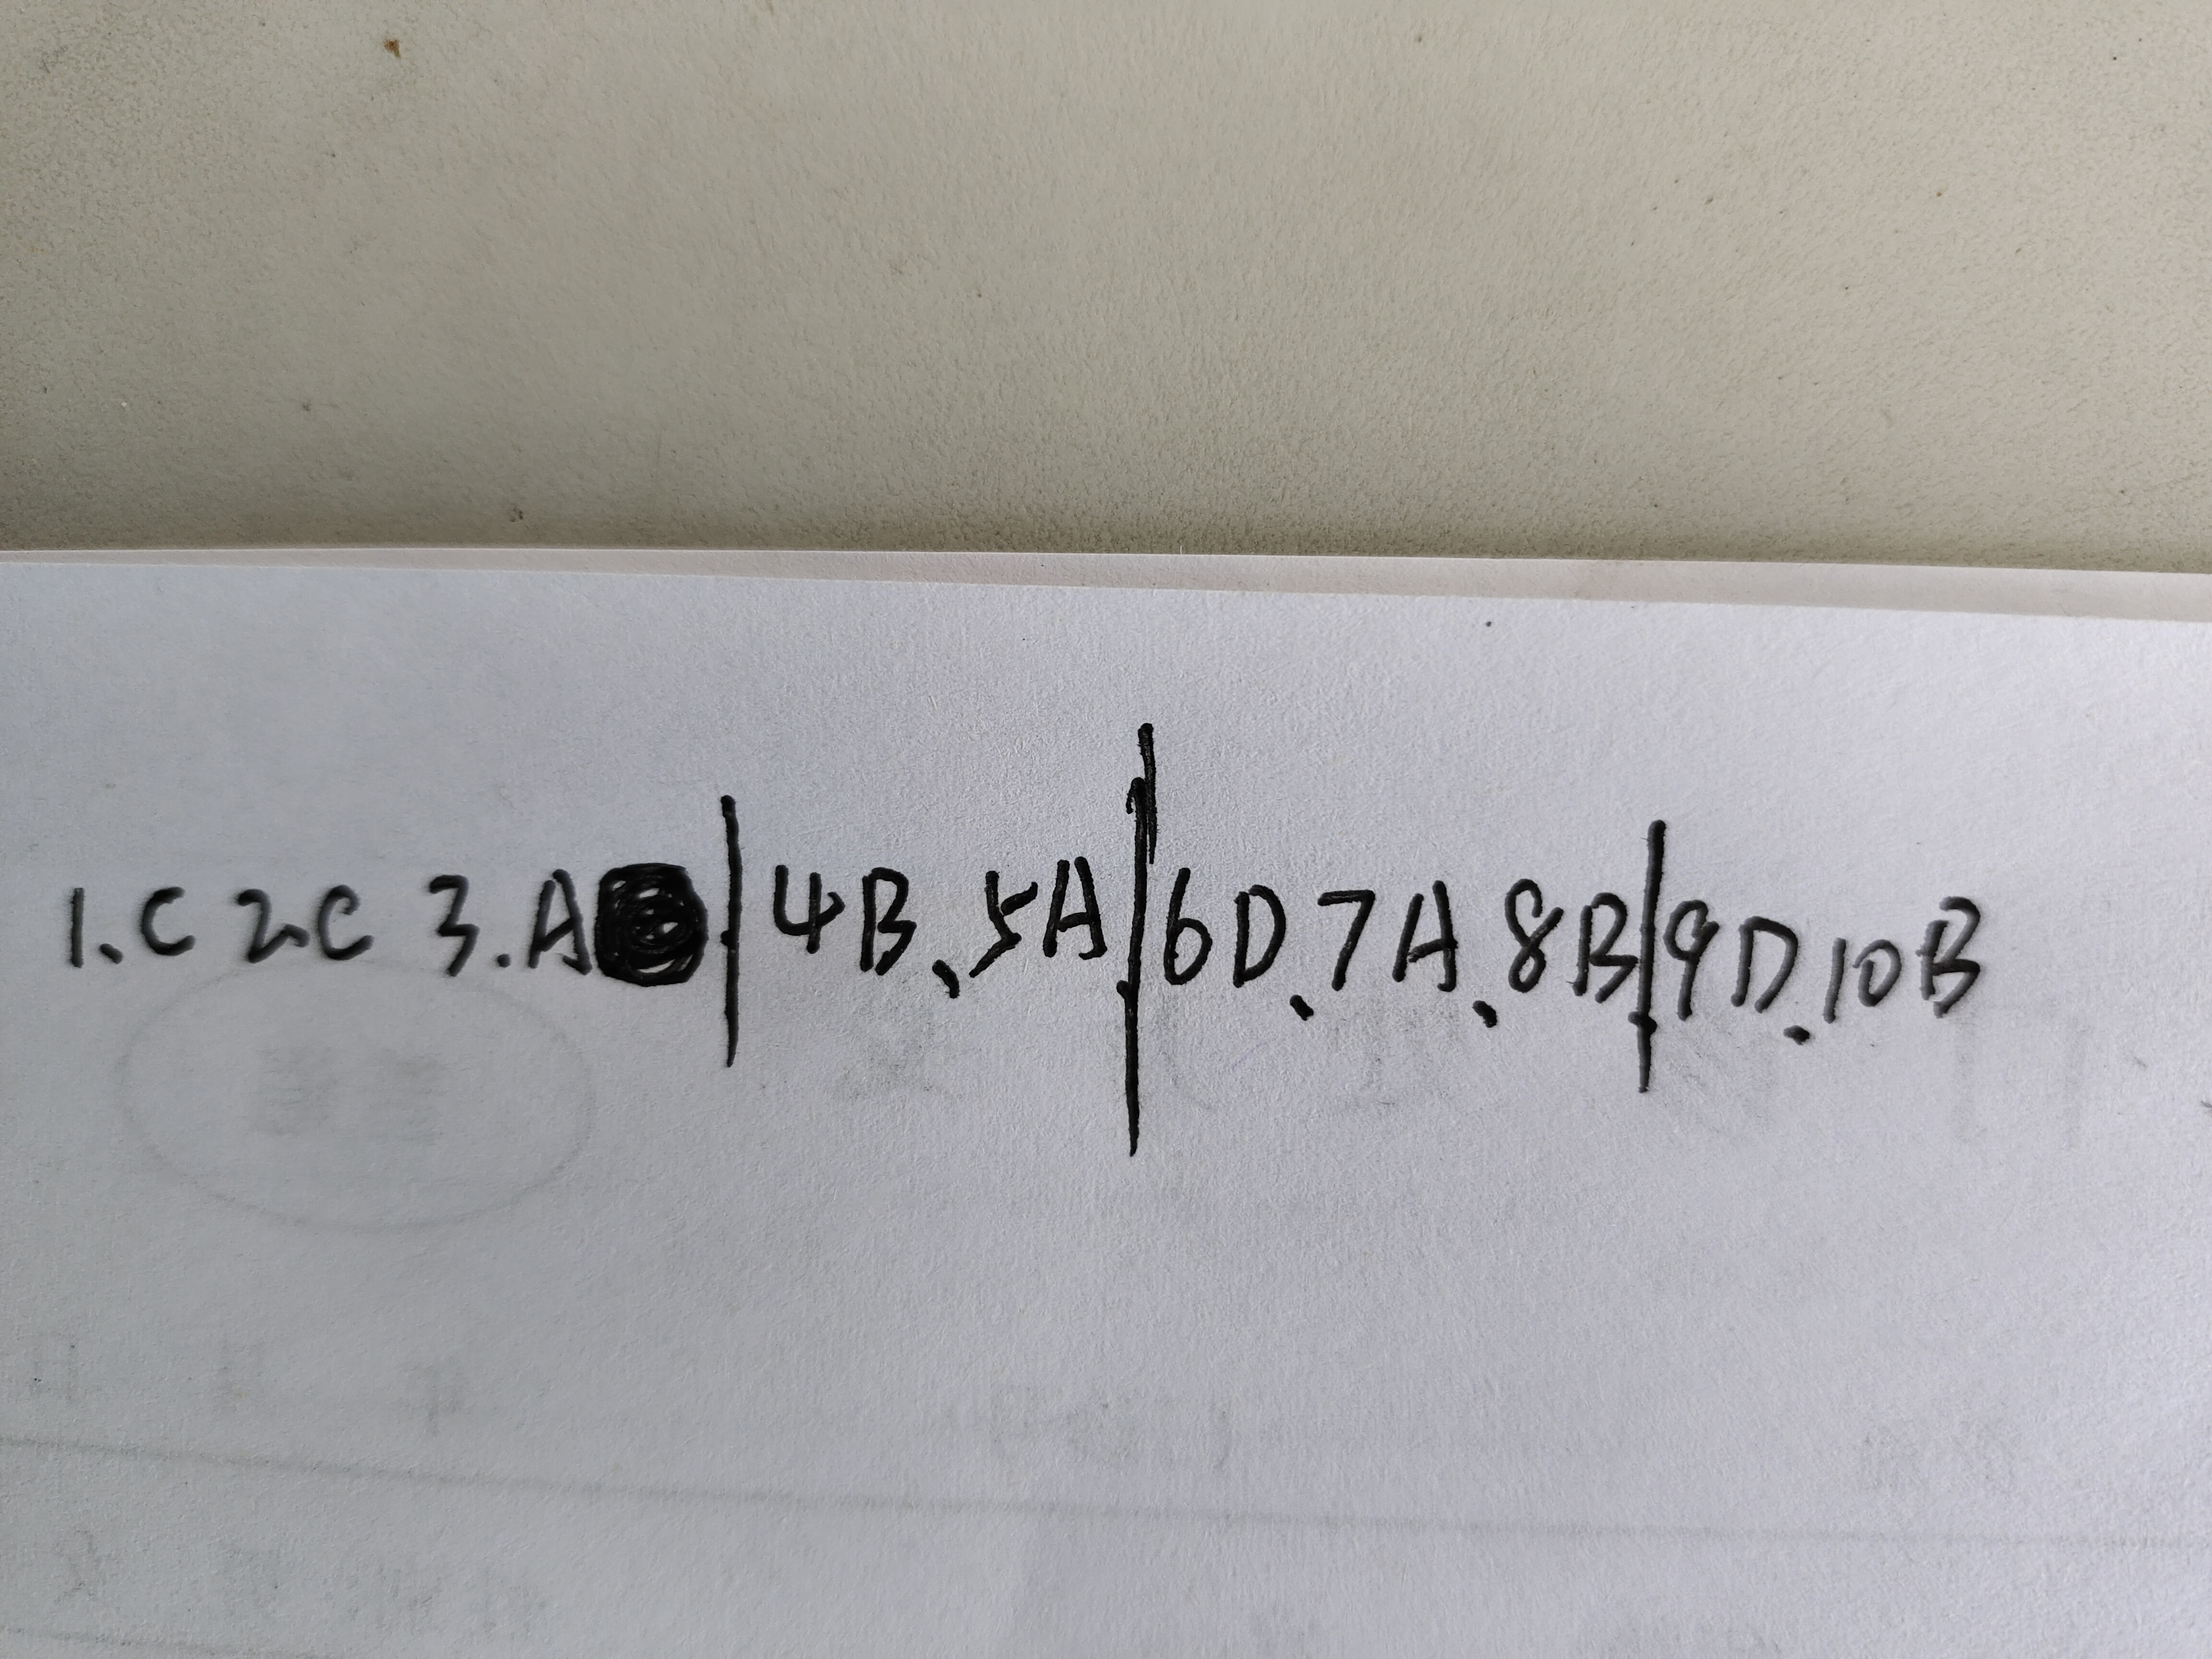 1.C 2.C 3.A | 4B.5A | 6D.7A.8B | 9D.10B